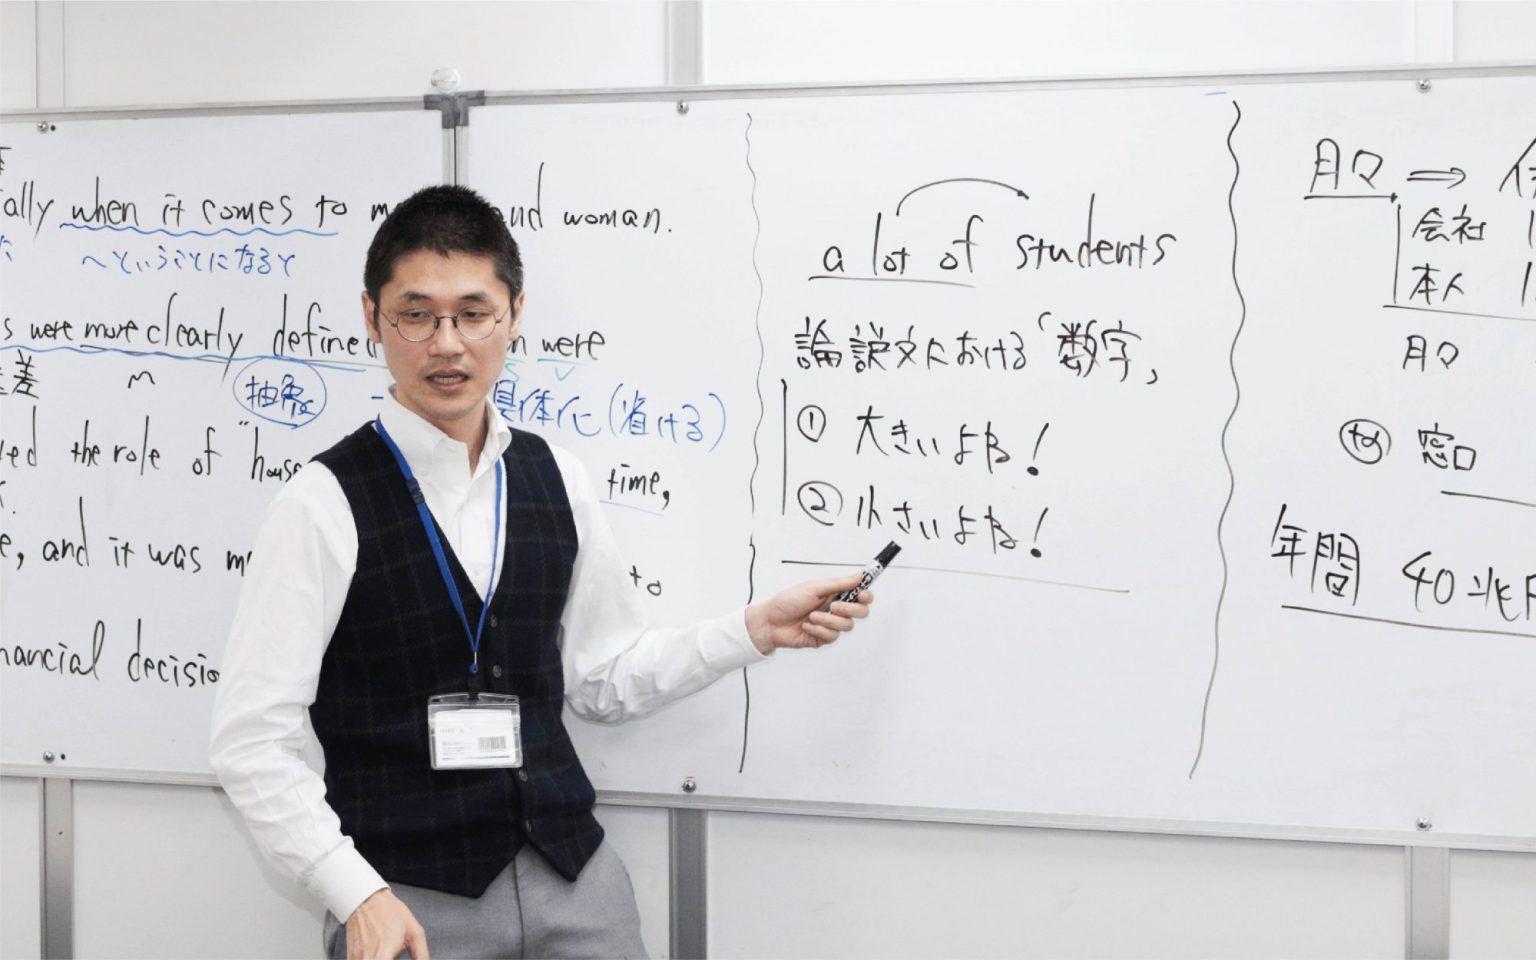 ally when it comes to m nd woman.
へということになると
s were more clearly define n were
差
抽象 具体化(省ける)
ed the role of "hous time,
e, and it was m to
nancial decisio
a lot of students
論説文における「数字」
① 大きいよね!
② 小さいよね!
月々 ⇒
会社
本人
月々
窓口
年間 40兆円